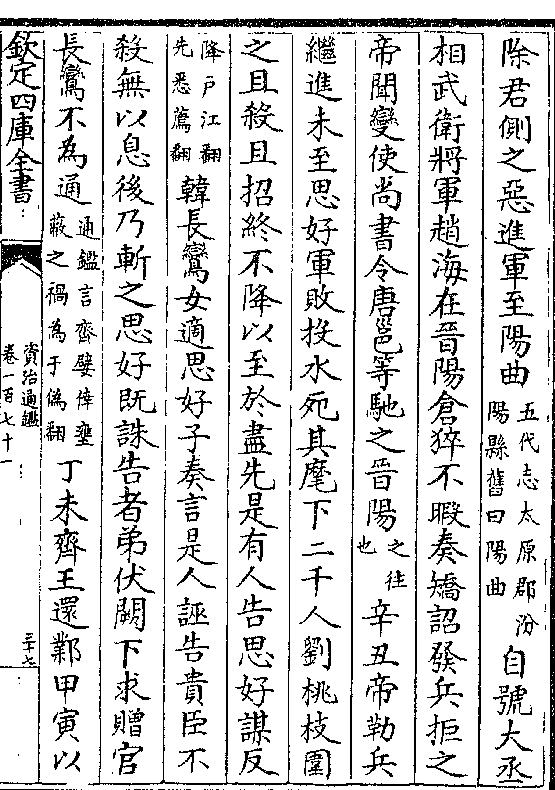 除君側之惡進軍至陽曲五代志太原郡汾陽縣舊曰陽曲自號大丞
相武衛將軍趙海在晉陽倉猝不暇奏矯詔發兵拒之
帝聞變使尚書令唐邕等馳之晉陽之往也辛丑帝勒兵
繼進未至思好軍敗投水死其麾下二千人劉桃枝圍
之且殺且招終不降以至於盡先是有人告思好謀反
降戶江翻先悉薦翻韓長鸞女適思好子奏言是人誣告貴臣不
殺無以息後乃斬之思好既誅告者弟伏闕下求贈官
長鸞不為通通鑑言齊嬖倖壅蔽之禍為于偽翻丁未齊王還鄴甲寅以
欽定四庫全書
資治通鑑
卷一百七十一
三十七